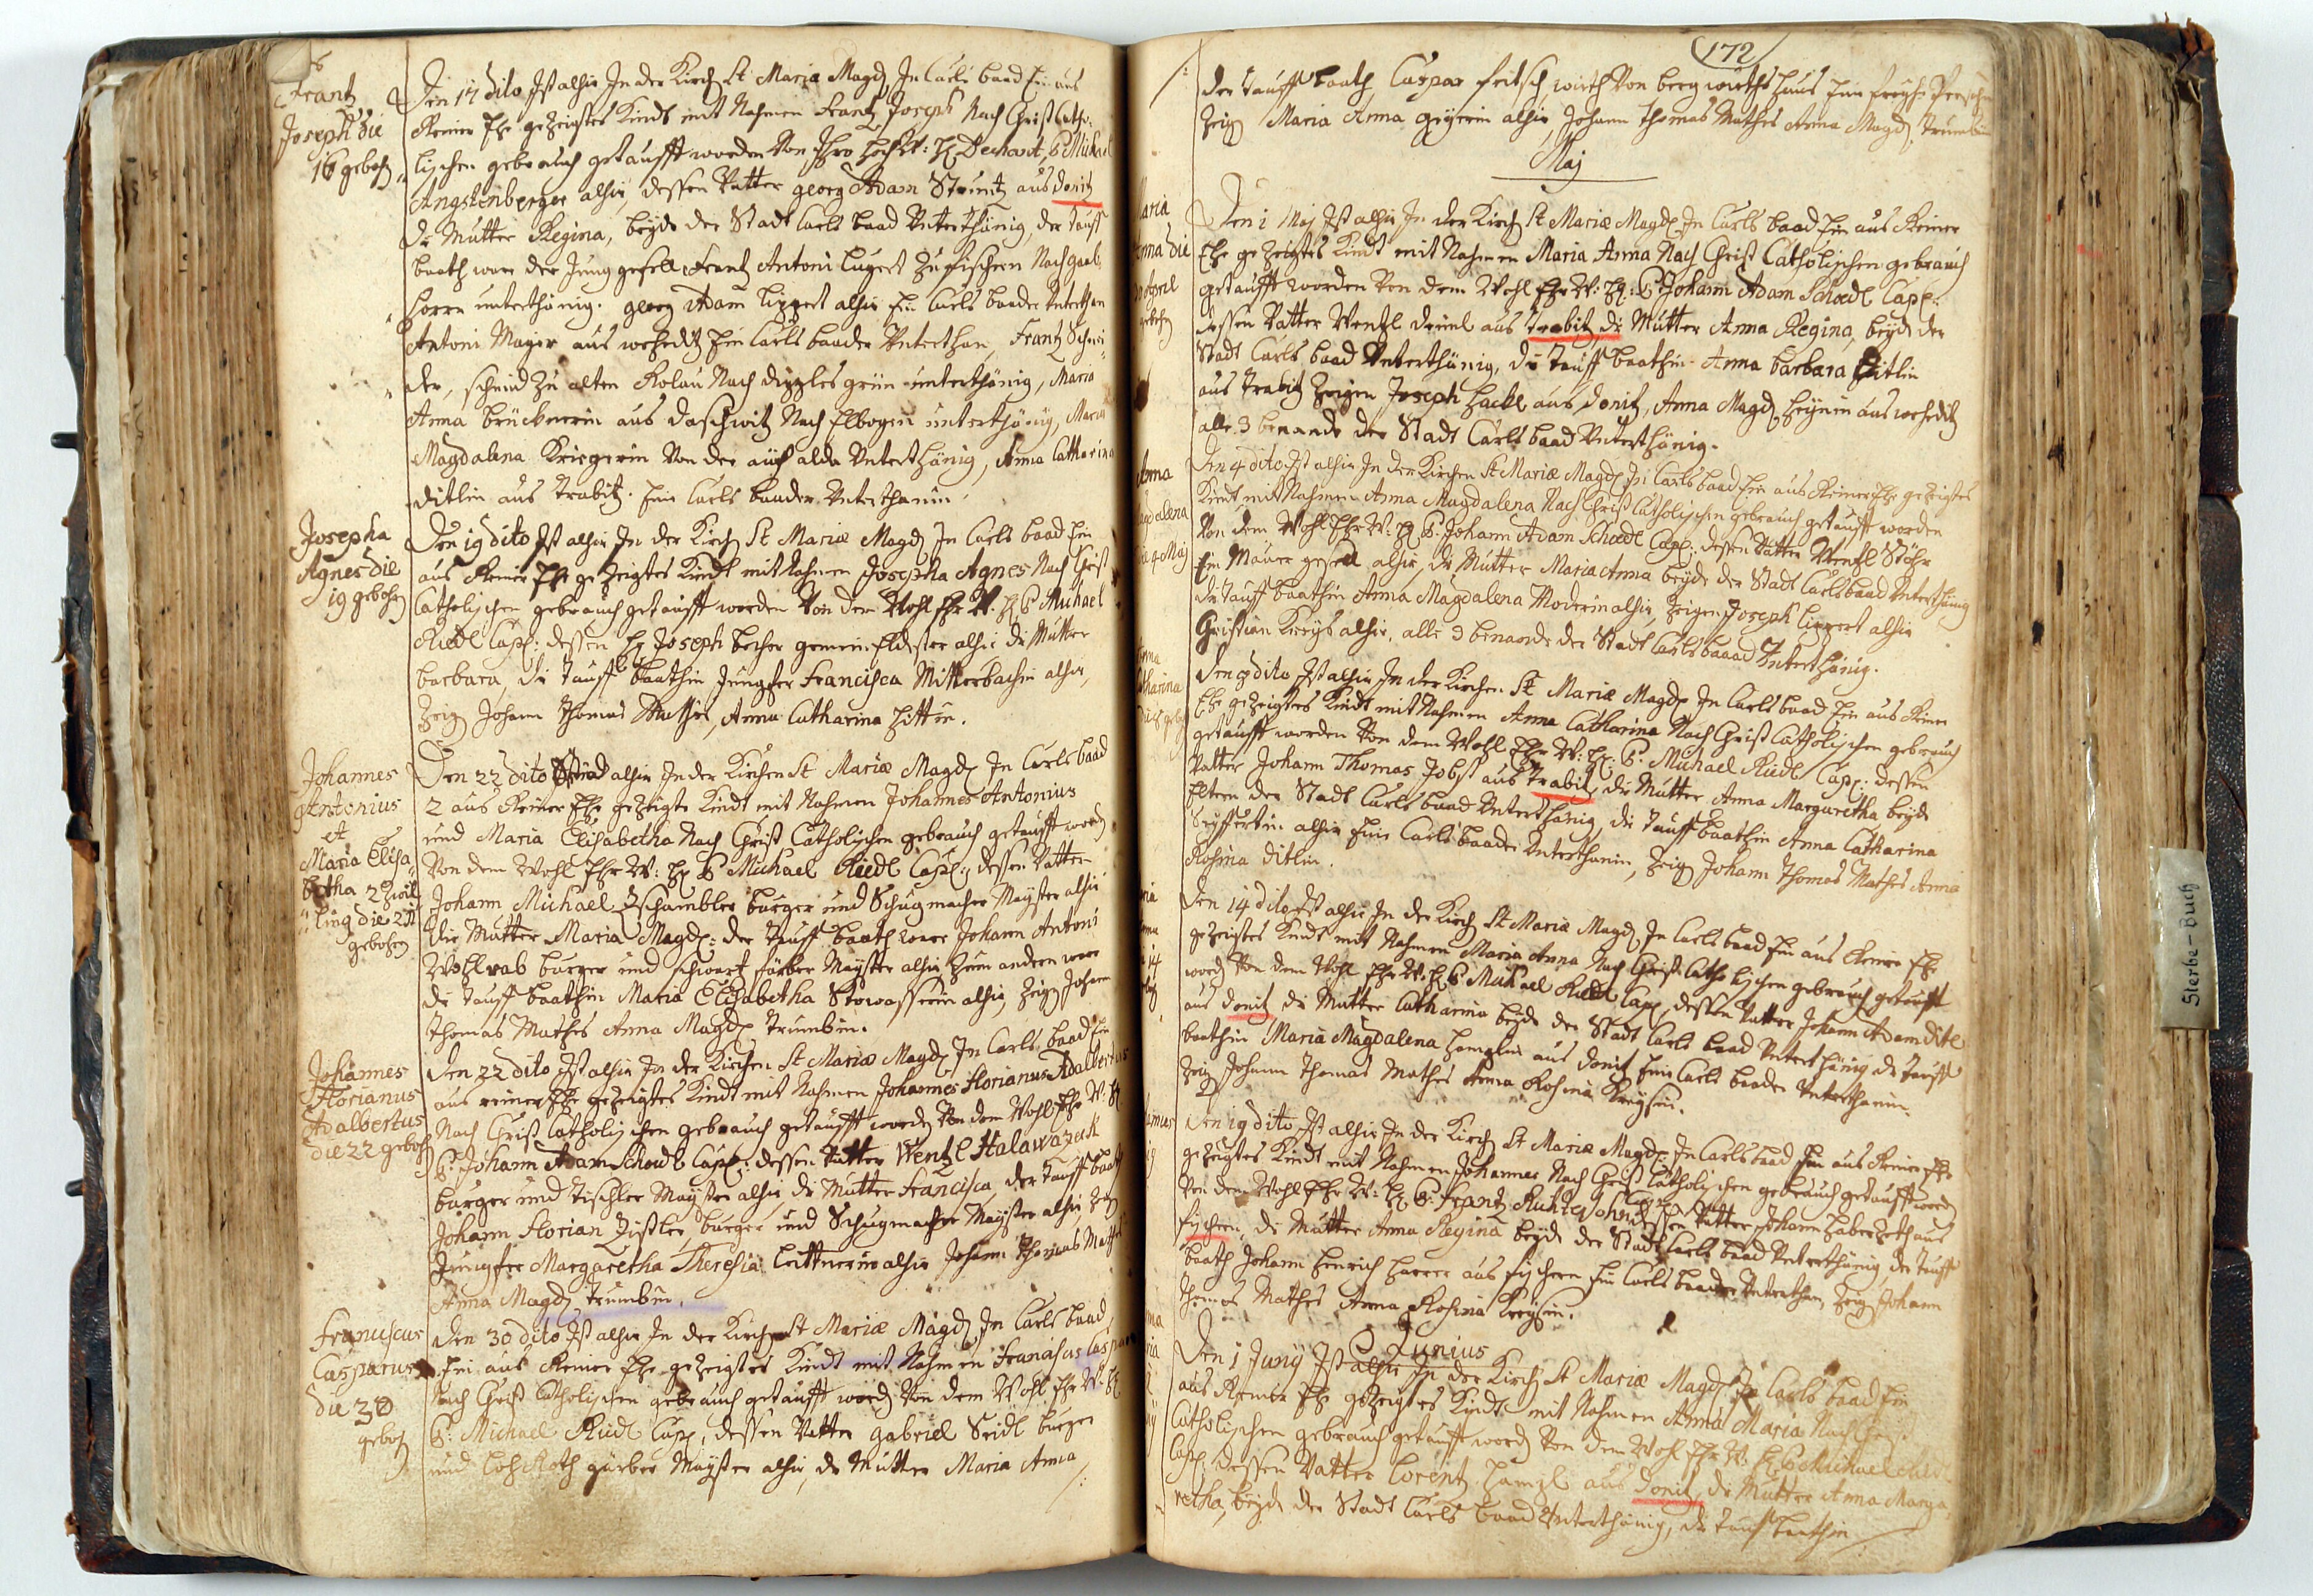 Frantz
Joseph die
16 gebohr
Den 17 dito Ist alhir In der Kirch St Mariæ Magd In Carls baad Ein aus
Reiner Ehe gezeigtes Kindt mit Nahmen Frantz Joseph Nach Christ Catho-
lischen gebrauch getaufft worden Von Ihro Hochw: H Dechant, P Michael
Angstenberger alhir, dessen Vatter georg Adam Struntz aus donitz
die Mutter Regina, beyde der Stadt Carls baad Unterthänig, der tauff
baath ware der Jung gesell Frantz Antoni Lugert zu fischern Nach
unterthänig. georg Adam Lippert alhir Ein Carls baader Unterthan
Antoni Mayer aus wehedtz Ein Carls baader Unterthan, Frantz Schmi-
der, schmid zu alten Rolau Nach unterthänig, Maria
Anna brücknerin aus daschwitz Nach Elbogen unterthänig, Maria
Magdalena Kriegerin Von der auch alda Unterthänig, Anna Catharina
ditlin aus trabitz. Eine Carls baader Unterthanin
Josepha
Agnes die
19 gebohr
Den 19 dito Ist alhir In der Kirch St Mariæ Magd In Carls baad Ein
aus Reiner Ehe gezeigtes Kindt mit Nahmen Josepha Agnes Nach Christ
Catholischen gebrauch getaufft worden Von dem Wohl Ehr W: H P Michael
Riedl Capl: dessen H Joseph becher gemein Eldester alhir die Mutter
barbara, die tauff baathin Jungfer Francisca Mitterbachin alhir,
Zeig Johann Thomas Mathes, Anna Catharina
Johannes
Antonius
et
Maria Elisa
betha 2 Zwil
ling die 21
gebohren
Den 22 dito Seind alhir In der Kirchen St Mariæ Magd In Carls baad
2 aus Reiner Ehe gezeigte Kindt mit Nahmen Johannes Antonius
und Maria Elisabetha Nach Christ Catholischen gebrauch getaufft word
Von dem Wohl Ehr W: H P Michael Riedl Capl:, dessen Vatter
Johann Michael Zschambler burger und Schugmacher Mayster alhir
die Mutter Maria Magd: der tauff baath ware Johann Antoni
Wohlrab burger und schwartz färber Mayster alhir Zum andern ware
die tauff baathin Maria Elisabetha Stowasserin alhir, Zeig Johann
Thomas Mathes Anna Magd Trumbin.
Johannes
Florianus
Adalbertus
die 22 gebohr
Den 22 dito Ist alhir In der Kirchen St Mariæ Magd In Carls baad Ein
aus reiner Ehe gezeigtes Kindt mit Nahmen Johannes Florianus Adalbertus
Nach Christ Catholischen gebrauch getaufft word Von dem Wohl Ehr W: H
P: Johann Adam Schedl Capl: dessen Vatter Wentzl Halawazeck
burger und Tischler Mayster alhir die Mutter Francisca, der tauff baath
Johann Florian, burger und Schugmacher Mayster alhir, Zeig
Jungfer Margaretha Theresia Leittnerin alhir Johann Thomas Mathes
Anna Magd Trumbin.
Franciscus
Casparus
die 30
gebohr
Den 30 dito Ist alhir In der Kirch St Mariæ Magd In Carls baad
Ein aus Reiner Ehe gezeigtes Kindt mit Nahmen Franciscus Casparus
Nach Christ Catholischen gebrauch getaufft word Von dem Wohl Ehr W: H
P: Michael Riedl Capl, dessen Vatter gabriel Seidl burger
und Loh Roth gärber Mayster alhir, die Mutter Maria Anna
172
der tauff baath Caspar fritsch wirth Von berg wirths haus
Zeig Maria Anna geyerin alhir, Johann Thomas Mathes Anna Magd. Trumbin
Maj
Maria
Anna die
April
gebohr
Den 1 Maj Ist alhir In der Kirch St Mariæ Magd In Carls baad Ein aus Reiner
Ehe gezeigtes Kindt mit Nahmen Maria Anna Nach Christ Catholischen gebrauch
getaufft worden Von dem Wohl Ehr W: H: P Johann Adam Schedl Capl:
dessen Vatter Wentzl aus trabitz, die Mutter Anna Regina, beyde der
Stadt Carls baad Unterthänig, die tauff baathin Anna barbara ditlin
aus trabitz Zeigen Joseph Hackl aus donitz, Anna Magd aus wehedtz
alle 3 benande der Stadt Carls baad Unterthänig.
Anna
Magdalena
die 4 Maj
Den 4 dito Ist alhir In der Kirchen St Mariæ Magd In Carls baad Ein aus Reiner Ehe gezeigtes
Kindt mit Nahmen Anna Magdalena Nach Christ Catholischen gebrauch getaufft worden
Von dem Wohl Ehr W: H P: Johann Adam Schedl Capl: dessen Vatter Wentzl Stöhr
Ein Maurer gesell alhir, die Mutter Maria Anna beyde der Stadt Carls baad Unterthänig
die tauff baathin Anna Magdalena Moderin alhir, Zeigen Joseph Lippert alhir
Christian Kreys alhir, alle 3 benande der Stadt Carls baad Unterthänig.
Anna
Catharina
Den dito Ist alhir In der Kirchen St Mariæ Magd In Carls baad Ein aus Reiner
Ehe gezeigtes Kindt mit Nahmen Anna Catharina Nach Christ Catholischen gebrauch
getaufft worden Von dem Wohl Ehr W: H: P: Michael Riedl Capl: dessen
Vatter Johann Thomas Jobst aus trabitz, die Mutter Anna Margaretha beyde
Eltern der Stadt Carls baad Unterthänig, die tauff baathin Anna Catharina
Seyffertin alhir Eine Carls baader Unterthanin, Zeig Johann Thomas Mathes Anna
Rosina ditlin.
14
Den 14 dito Ist alhir In der Kirch St Mariæ Magd In Carls baad Ein aus Reiner Ehe
gezeigtes Kindt mit Nahmen Maria Anna Nach Christ Catholischen gebrauch getaufft
word Von dem Wohl Ehr W: H P Michael Riedl Capl, dessen Vatter Johann Adam ditl
aus donitz, die Mutter Catharina beyde der Stadt Carls baad Unterthänig die tauff
baathin Maria Magdalena Hamplin aus donitz Eine Carls baader Unterthanin.
Zeig Johann Thomas Mathes Anna Rosina Kreysin.
Den 19 dito Ist alhir In der Kirch St Mariæ Magd In Carls baad Ein aus Reiner Ehe
gezeigtes Kindt mit Nahmen Johannes Nach Christ Catholischen gebrauch getaufft word
Von dem Wohl Ehr W: H P: Frantz Richter dessen Vatter Johann Haberzeth aus
fischern, die Mutter Anna Regina beyde der Stadt Carls baad Unterthänig, der tauff
baath Johann Henrich Harrer aus fischern Ein Carls baader Unterthan, Zeig Johann
Thomas Mathes Anna Rosina Kreysin.
Junius
Den 1 Juny Ist alhir In der Kirch St Mariæ Magd In Carls baad Ein
aus Reiner Ehe gezeigtes Kindt mit Nahmen Anna Maria Nach Christ
Catholischen gebrauch getaufft word Von dem Wohl Ehr W: H P Michael Riedl
Capl, dessen Vatter Lorentz Hampl aus donitz, die Mutter Anna Marga-
retha, beyde der Stadt Carls baad Unterthänig, die tauff baathin
Sterbe-Buch